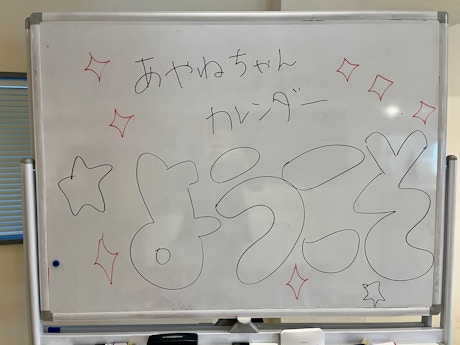 あやねちゃん
カレンダー
ようこそ